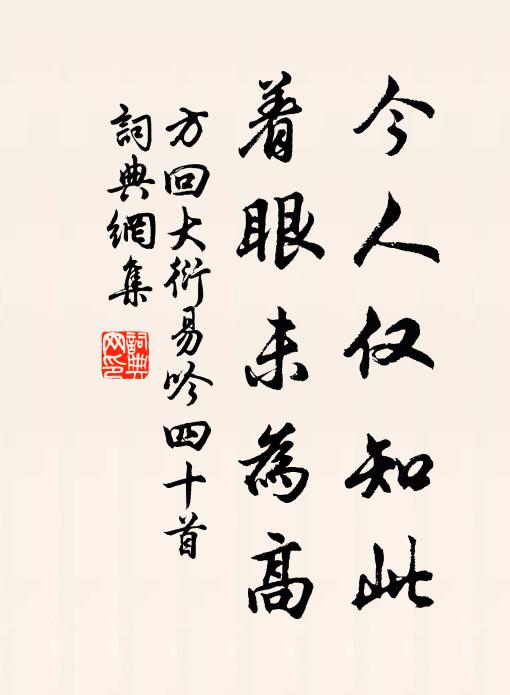 今人仅知此
着眼未為高
方回大衍易吟四十首
詞典網集
詞典網印